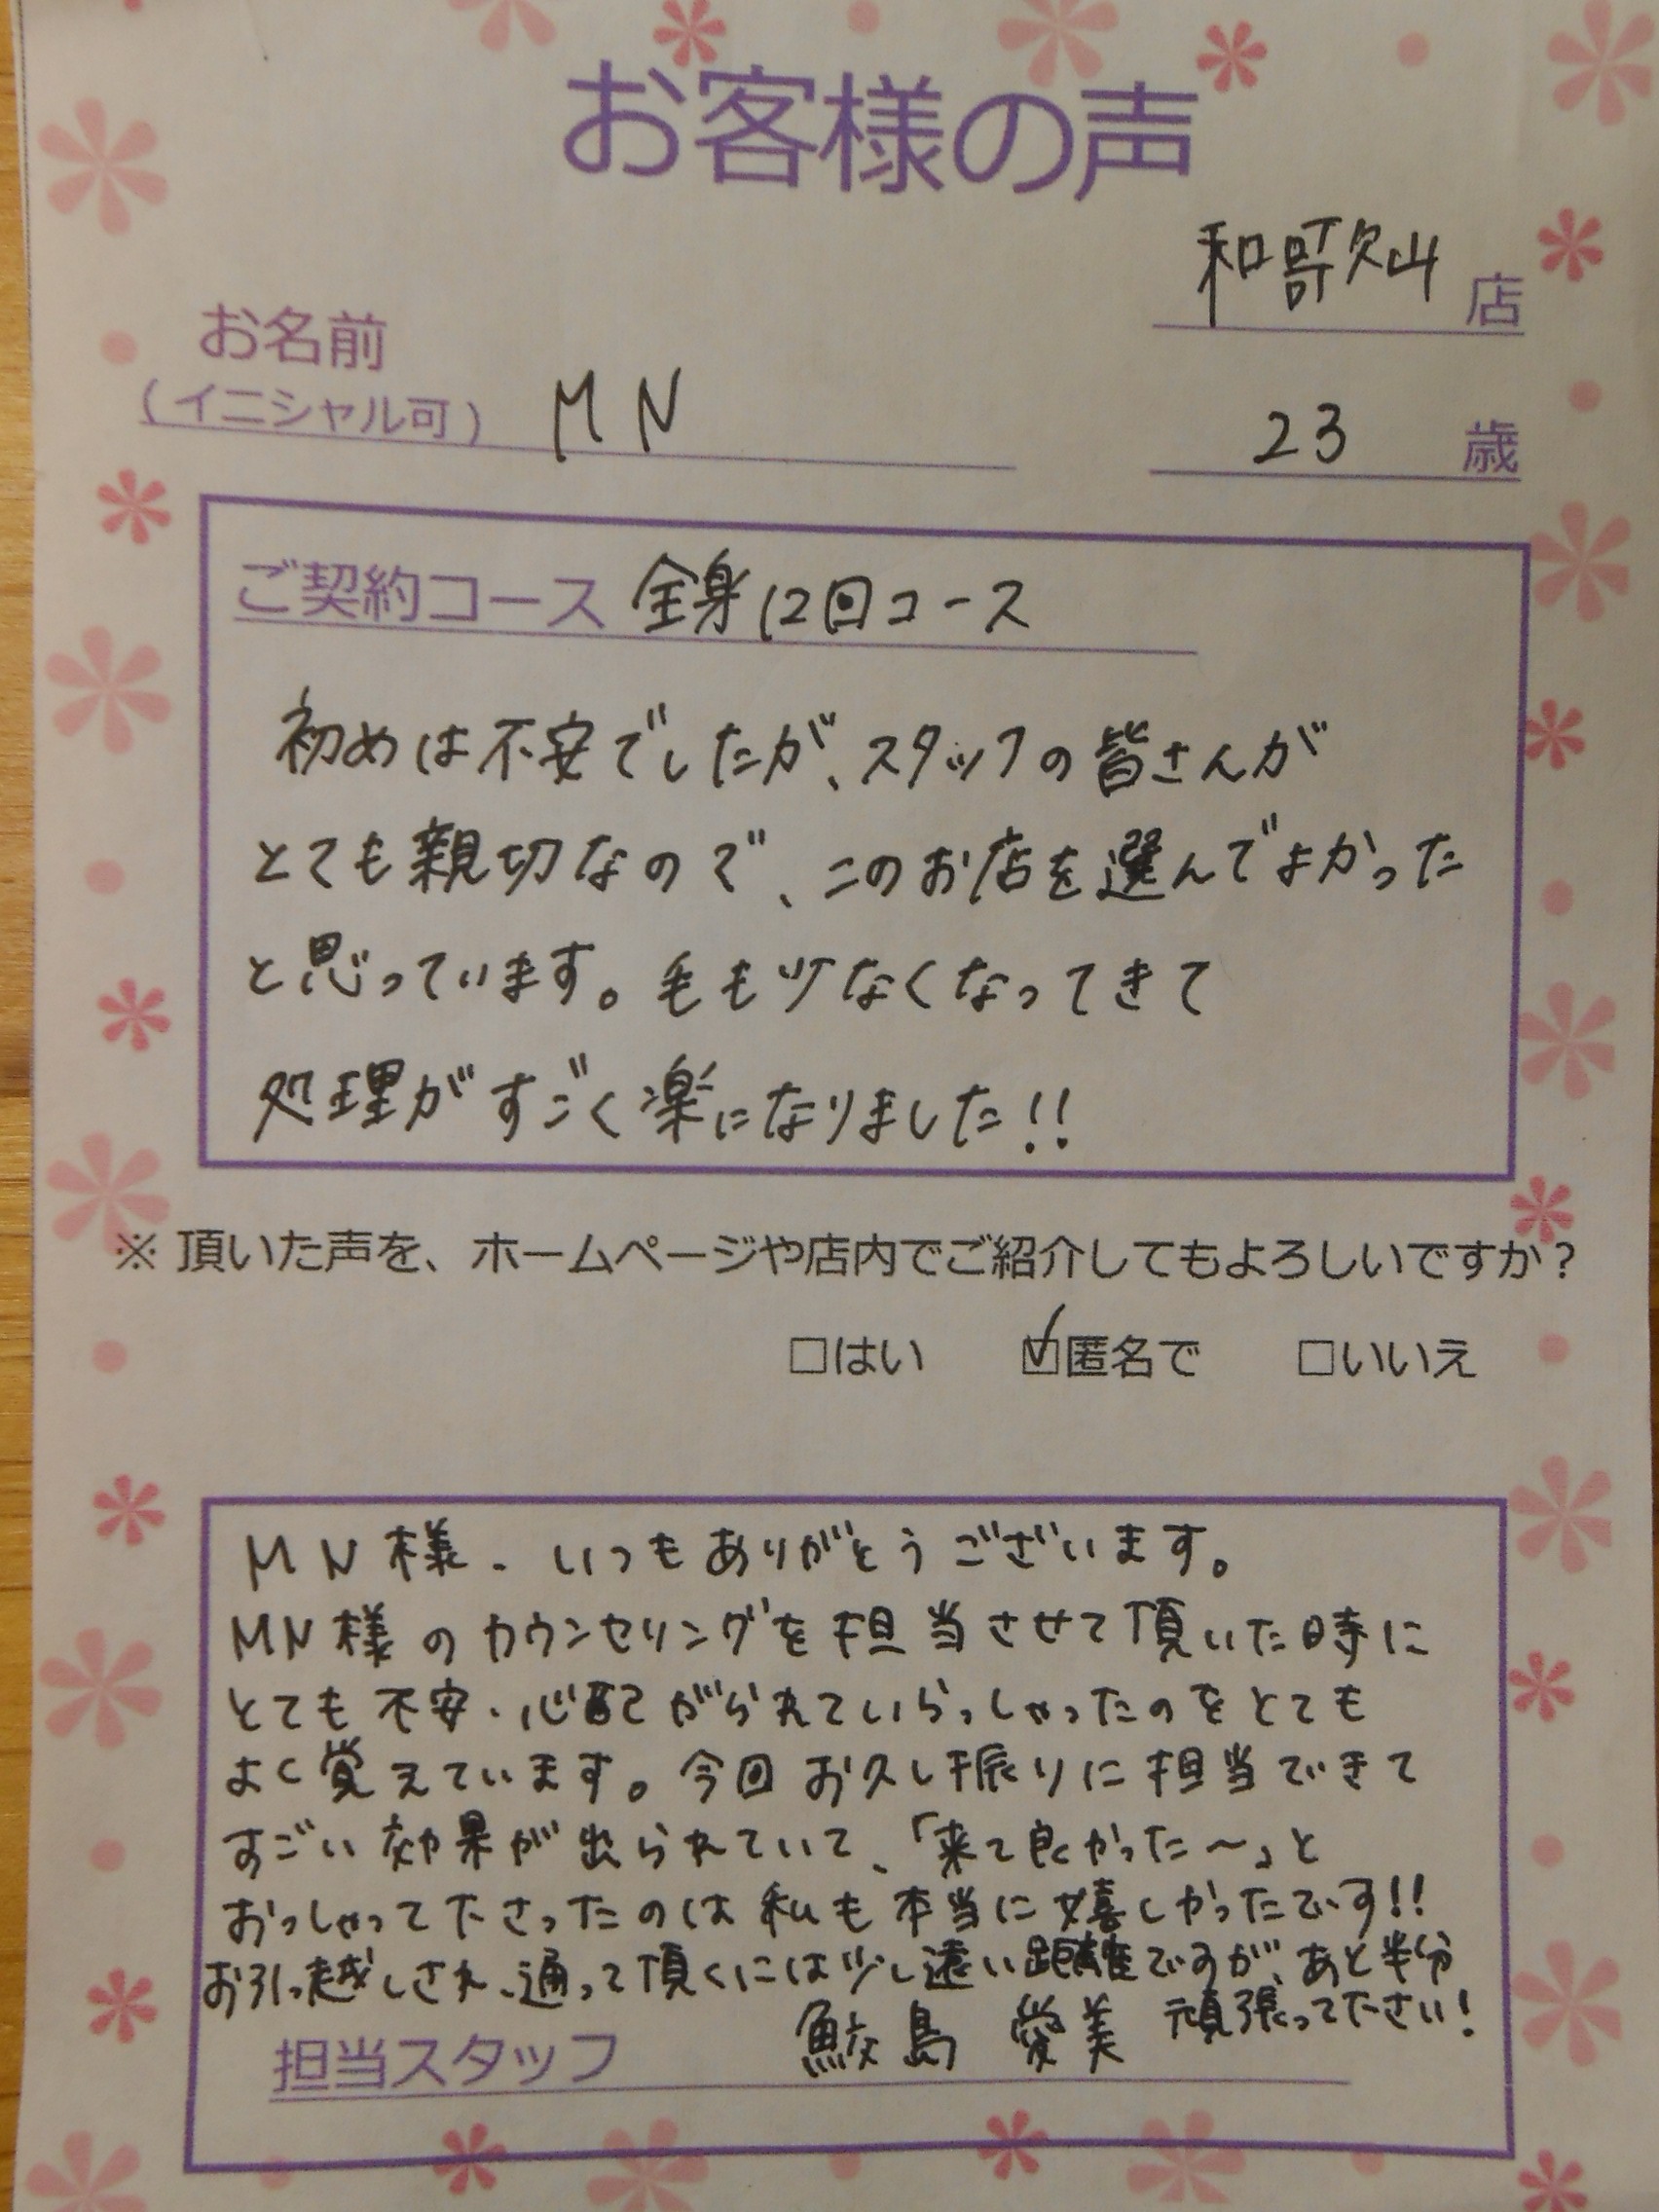 お客様の声
和歌山 店
お名前
(イニシャル可) MN 23 歳
ご契約コース 全身12回コース
初めは不安でしたが、スタッフの皆さんが
とても親切なので、このお店を選んでよかった
と思っています。毛も少なくなってきて
処理がすごく楽になりました!!
※ 頂いた声を、ホームページや店内でご紹介してもよろしいですか?
□はい ☑匿名で □いいえ
MN様、いつもありがとうございます。
MN様のカウンセリングを担当させて頂いた時に
とても不安・心配がられていらっしゃったのをとても
よく覚えています。今回お久し振りに担当できて
すごい効果が出られていて、「来て良かった~」と
おっしゃって下さったのは私も本当に嬉しかったです!!
お引っ越しされ、通って頂くには少し遠い距離ですが、あと半分
頑張って下さい!
担当スタッフ 鮫島 愛美